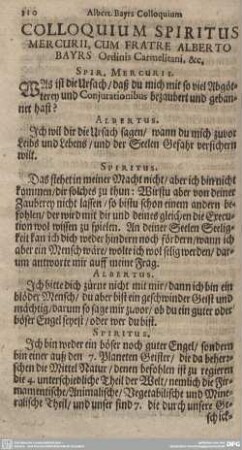 310 Albert. Bayrs Colloquium
COLLOQUIUM SPIRITUS
MERCURII, CUM FRATRE ALBERTO
BAYRS Ordinis Carmelitani, &c,
SPIR. MERCURII.
WAs ist die Ursach/ daß du mich mit so viel Abgöt-
terey und Conjurationibus bezaubert und geban-
net hast?
ALBERTUS.
Ich will dir die Ursach sagen/ wann du mich zuvor
Leibs und Lebens/ und der Seelen Gefahr versichern
wilt.
SPIRITUS.
Das stehet in meiner Macht nicht/ aber ich bin nicht
kommen/ dir solches zu thun: Wirstu aber von deiner
Zauberey nicht lassen/ so bistu schon einem andern be-
fohlen/ der wird mit dir und deines gleichen die Execu-
tion wol wissen zu spielen. An deiner Seelen Seelig-
keit kan ich dich weder hindern noch fördern/ wann ich
aber ein Mensch wäre/ wolte ich wol selig werden/ dar-
um antworte mir auff meine Frag.
ALBERTUS.
Ich bitte dich zürne nicht mit mir/ dann ich bin ein
blöder Mensch/ du aber bist ein geschwinder Geist und
mächtig/ darum so sage mir zuvor/ ob du ein guter oder
böser Engel seyest/ oder wer du bist.
SPIRITUS.
Ich bin weder ein böser noch guter Engel/ sondern
bin einer auß den 7. Planeten Geister/ die da beherr-
schen die Mittel Natur/ denen befohlen ist zu regieren
die 4. unterschiedliche Theil der Welt/ nemlich die Fir-
mamentische/Animalische/ Vegetabilische und Mine-
ralische Theil/ und unser sind 7. die durch unsere Ge-
schick-